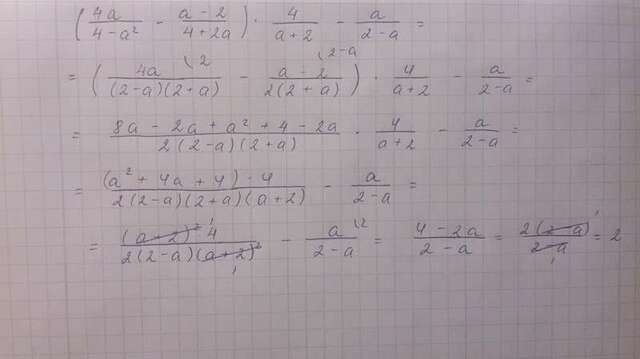 (4a/(4 - a²) - (a - 2)/(4 + 2a)) · 4/(a + 2) - a/(2 - a) =
= (4a/((2 - a)(2 + a)) \2 - (a - 2)/(2(2 + a)) \2-a) · 4/(a + 2) - a/(2 - a) =
= (8a - 2a + a² + 4 - 2a)/(2(2 - a)(2 + a)) · 4/(a + 2) - a/(2 - a) =
= ((a² + 4a + 4) · 4)/(2(2 - a)(2 + a)(a + 2)) - a/(2 - a) =
= ((a + 2)² · 4)/(2(2 - a)(a + 2)²) - a/(2 - a) \2 = (4 - 2a)/(2 - a) = 2(2 - a)/(2 - a) = 2